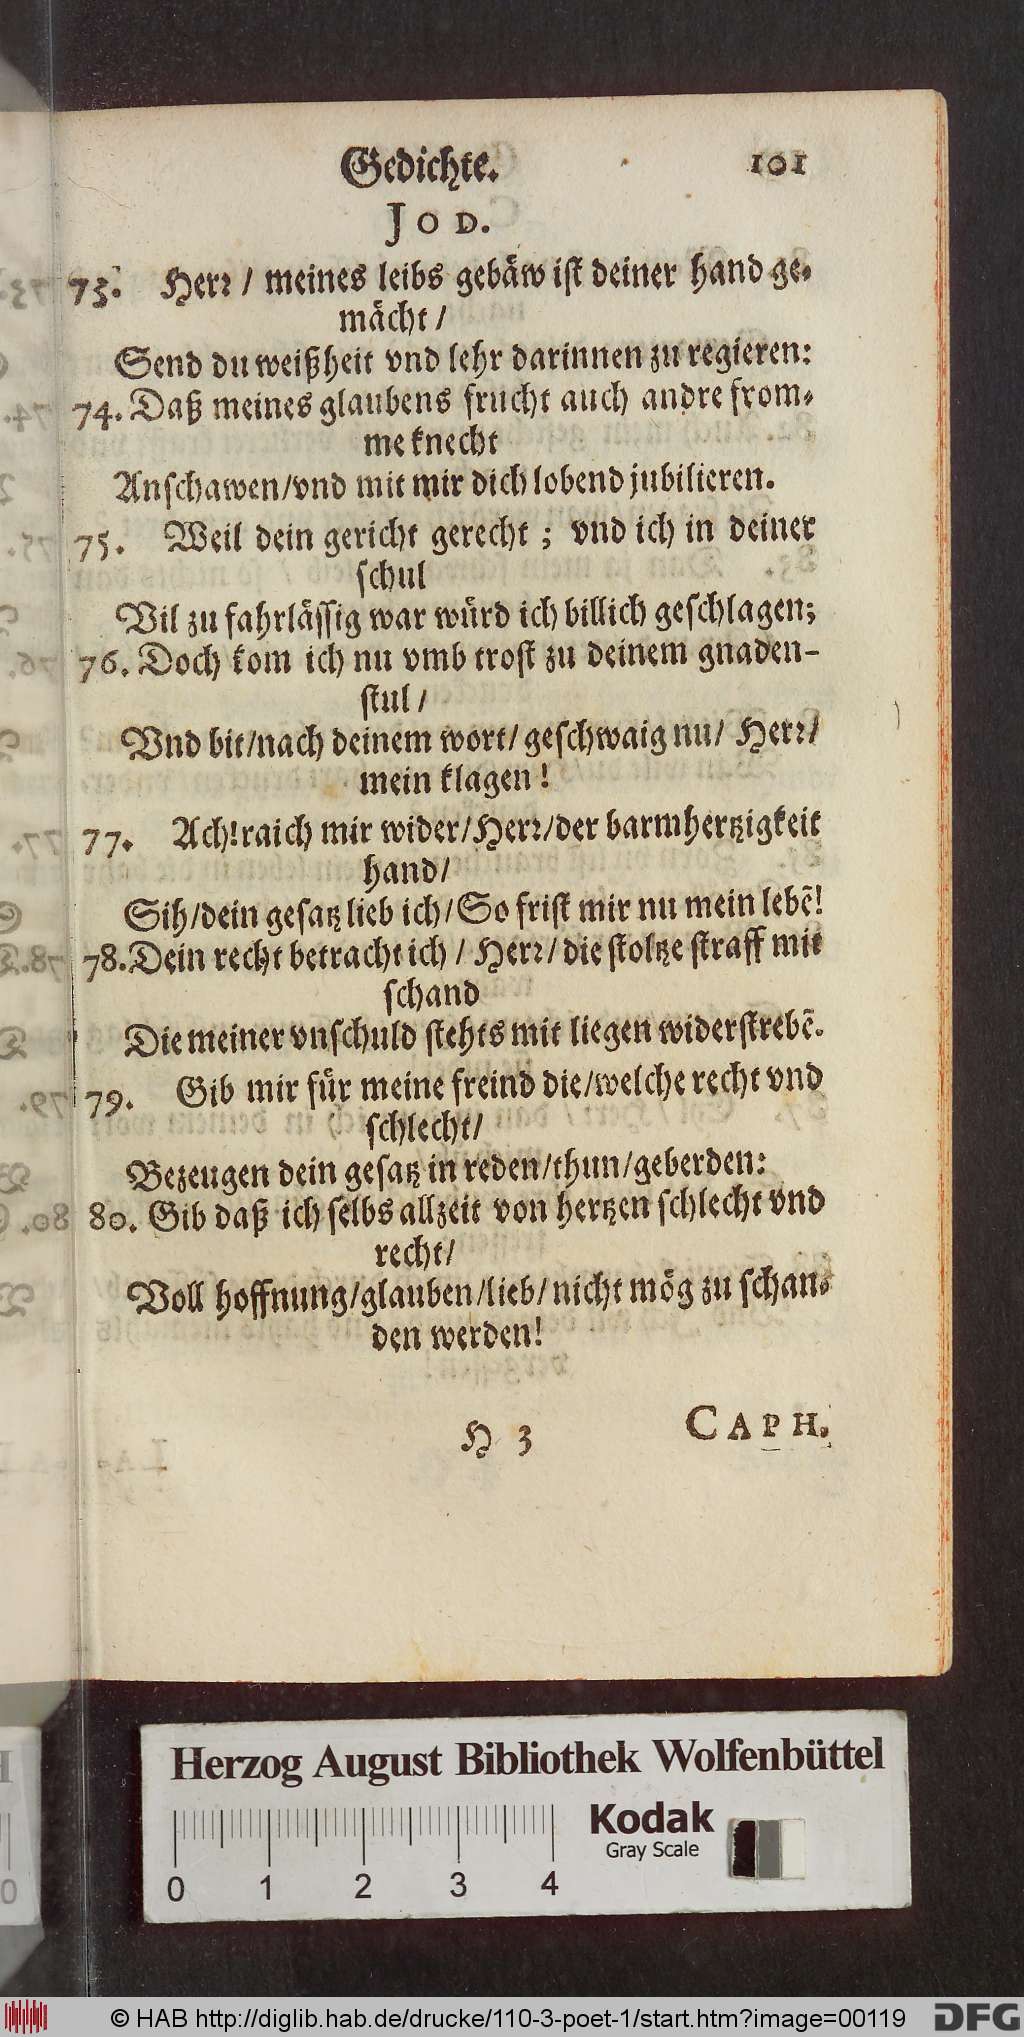 Gedichte. 101
JOD.
73. Herr / meines leibs gebäw ist deiner hand ge-
mächt /
Send du weißheit vnd lehr darinnen zu regieren:
74. Daß meines glaubens frucht auch andre from-
me knecht
Anschawen/vnd mit mir dich lobend jubilieren.
75. Weil dein gericht gerecht ; vnd ich in deiner
schul
Vil zu fahrlässig war würd ich billich geschlagen;
76. Doch kom ich nu vmb trost zu deinem gnaden-
stul /
Vnd bit/nach deinem wort/ geschwaig nu/ Herr/
mein klagen!
77. Ach! raich mir wider/Herr/der barmhertzigkeit
hand/
Sih/dein gesatz lieb ich/So frist mir nu mein lebẽ!
78. Dein recht betracht ich / Herr/ die stoltze straff mit
schand
Die meiner vnschuld stehts mit liegen widerstrebẽ.
79. Gib mir für meine freind die/welche recht vnd
schlecht/
Bezeugen dein gesatz in reden/thun/geberden:
80. Gib daß ich selbs allzeit von hertzen schlecht vnd
recht/
Voll hoffnung/glauben/lieb/nicht mög zu schan-
den werden!
H 3 CAPH.
Herzog August Bibliothek Wolfenbüttel
Kodak
Gray Scale
0 1 2 3 4
© HAB http://diglib.hab.de/drucke/110-3-poet-1/start.htm?image=00119 DFG